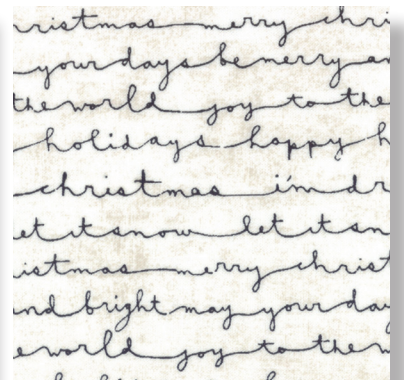 ristmas merry chri
your days be merry an
the world joy to the
holidays happy h
christmas i'm dr
et it snow let it sn
istmas merry christ
nd bright may your day
e world joy to the w